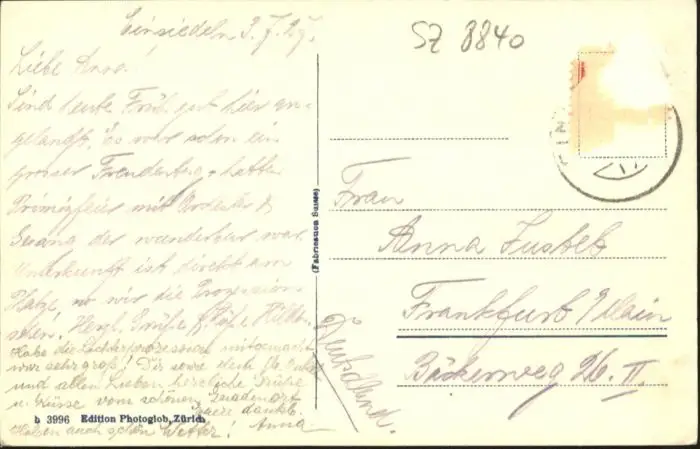 Einsiedeln 3.7.27.
SZ 8840
Liebe Anna!
Sind heute Früh gut hier an-
gelangt, es war schon ein
grosser Freudentag, hatten
Primizfeier mit Orchester &
Gesang der wunderbar war
Unterkunft ist direkt am
Platze wo wir die Prozession
sehen! Herzl. Grüße
Habe die Lichterprozession mitgemacht
war sehr groß! Dir sowie dein
und allen Lieben herzliche Grüße
u. Küsse vom schönen Gnadenort
Anna
Haben auch schön Wetter!
b 3996 Edition Photoglob, Zürich
(Fabrication Suisse)
EIN
Frau
Anna
Frankfurt a/Main
Bäckerweg 26. II
Deutschland.